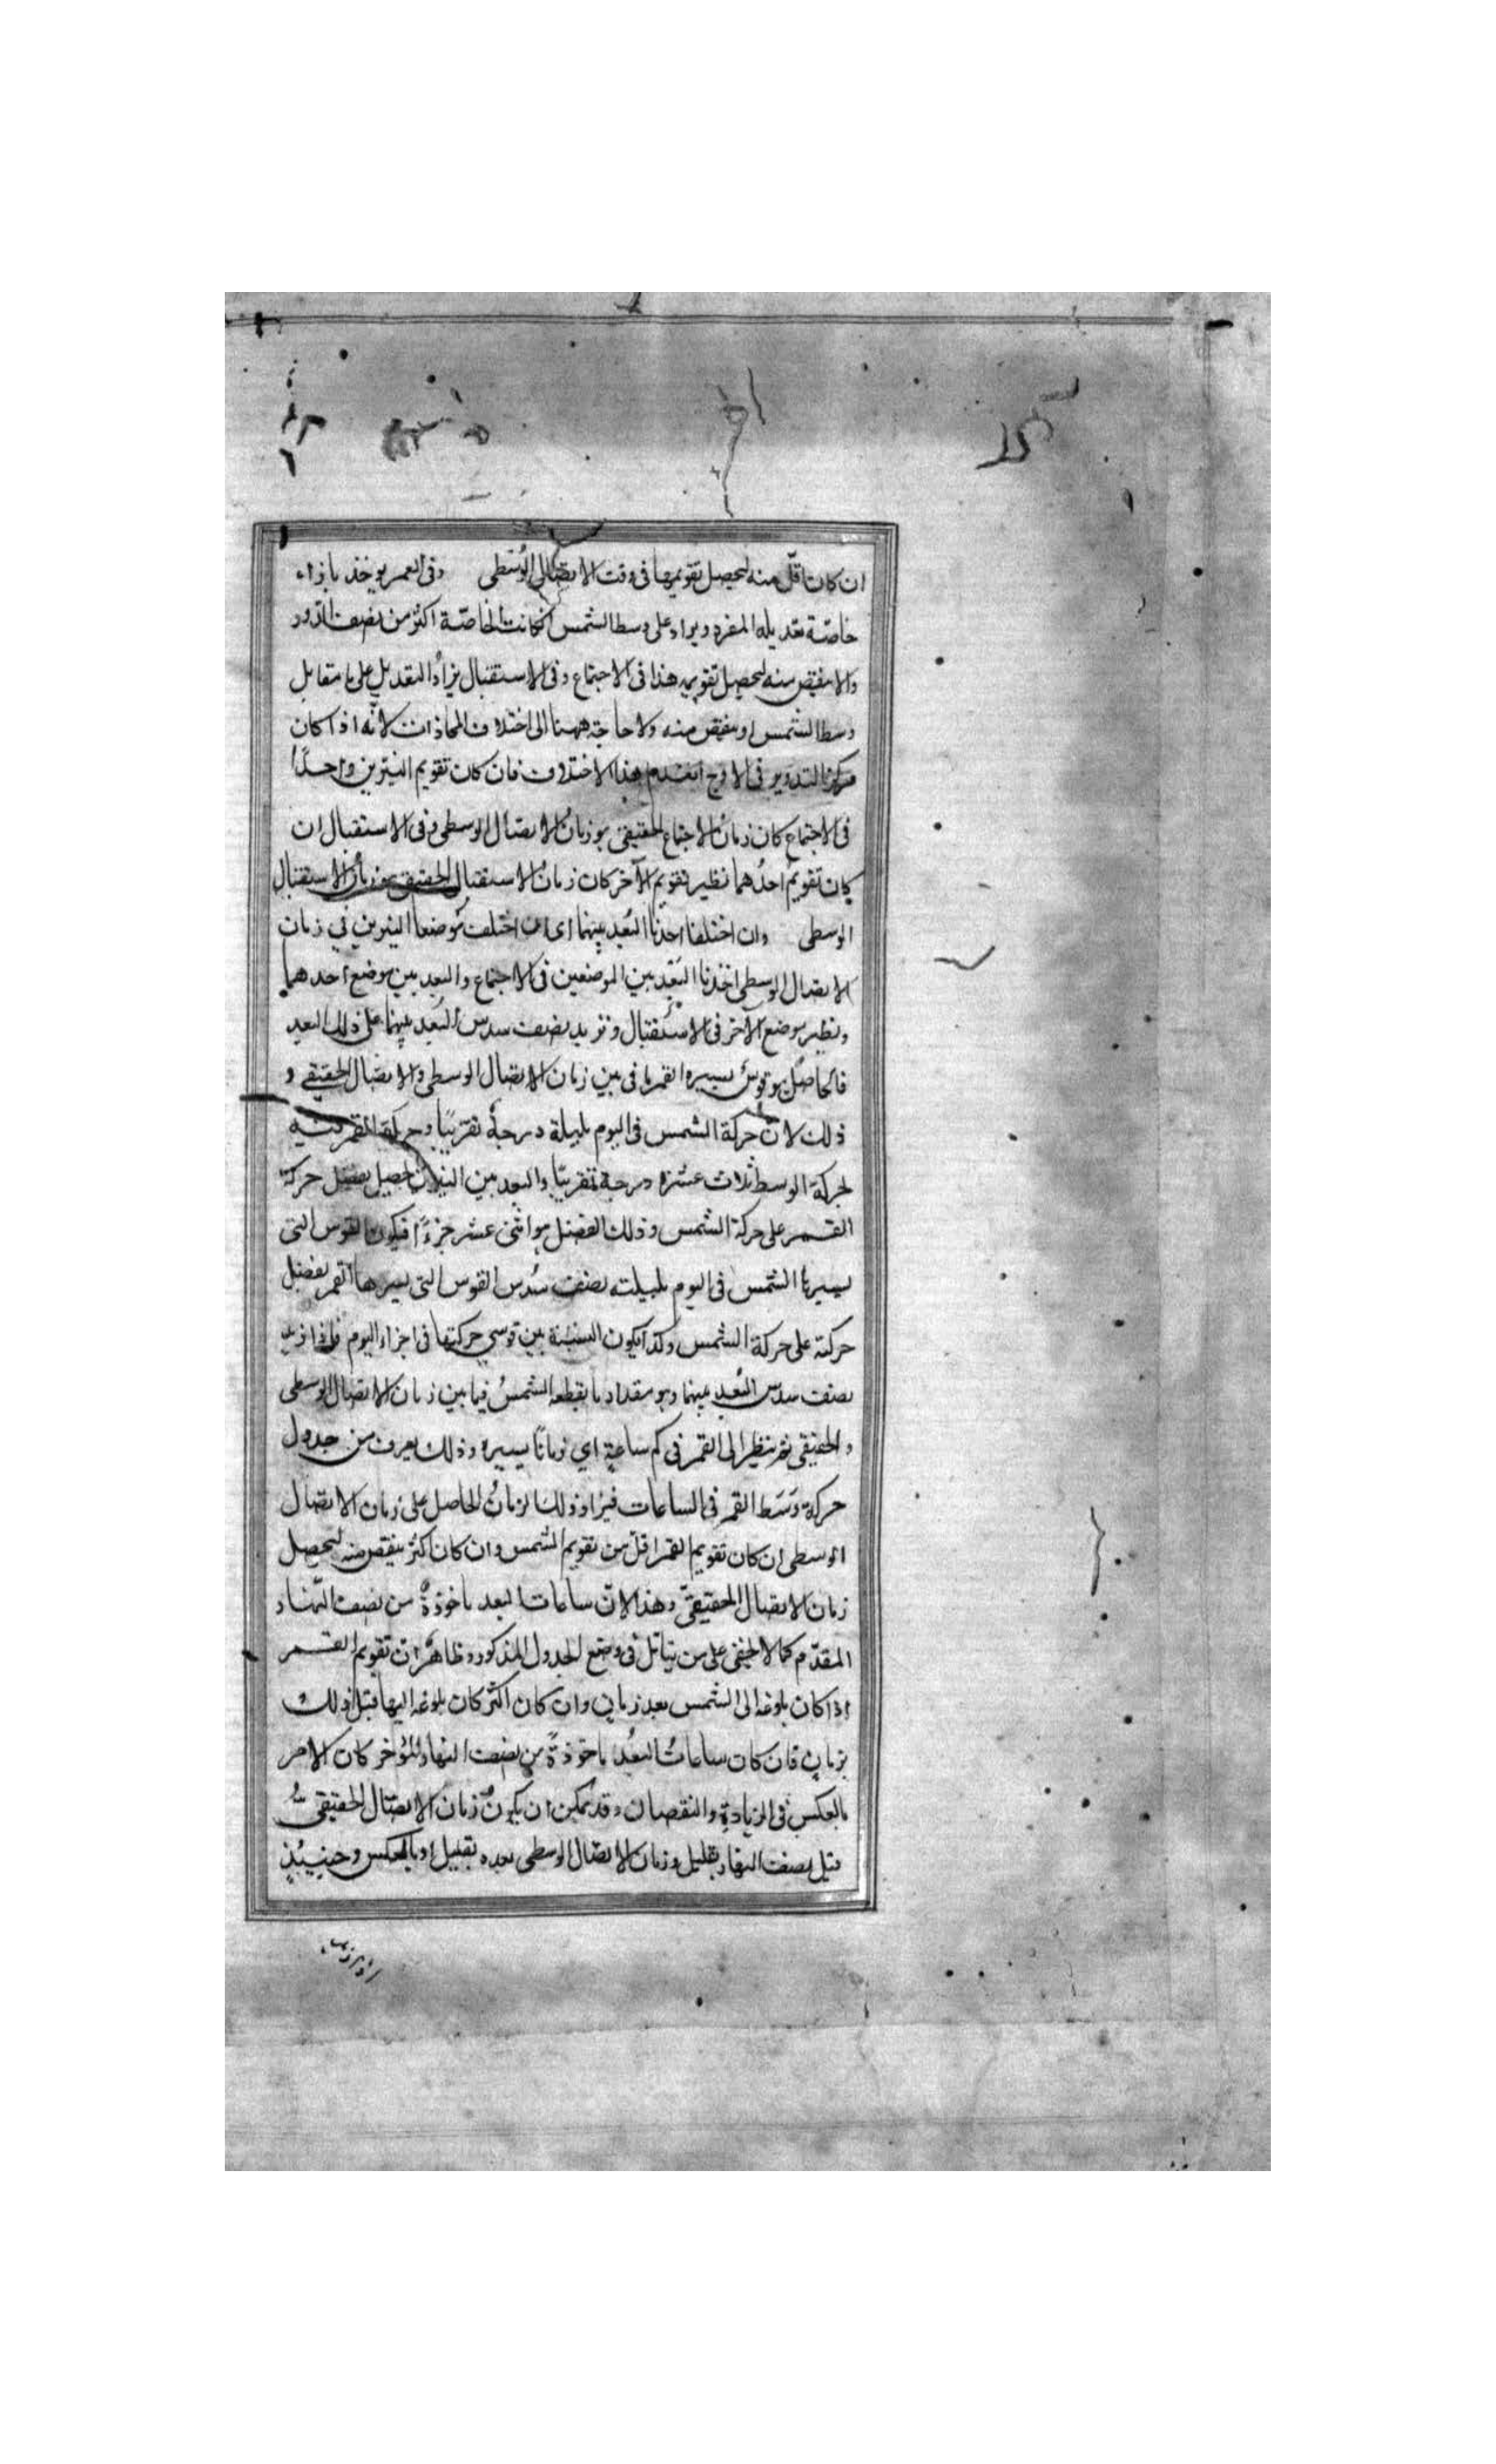 ان كان اقلّ منه ليحصل تقويمها فى وقت الاتصال الوُسَطى وفى القمر يوخذ بازاء
خاصّة تعديله المفرد ويزاد على وسط الشمس ان كانت الخاصّة اكثر من نصف الدّور
والا ينقص منه ليحصل تقويمه هذا فى الاجتماع وفى الاستقبال يزادُ التعديل على ما تقابل
وسط الشمس او ينقص منه ولا حاجة ههنا الى اختلاف المحاذات لانّه اذا كان
مركز التدوير فى الاوج انعدم هذا الاختلاف فان كان تقويم النيّرين واحدًا
فى الاجتماع كان زمانُ الاجتماع الحقيقى هو زمانُ الاتصال الوسطى وفى الاستقبال ان
كان تقويمُ احدُهما نظير تقويم الآخر كان زمانُ الاستقبال الحقيقى هو زمانُ الاستقبال
الوسطى وان اختلفا اخذنا البُعد بينهما اى ان اختلف موضعا النيرين في زمان
الاتصال الوسطى اخذنا البُعد بين الموضعين فى الاجتماع والبعد بين موضع احدهما
ونظير موضع الآخر فى الاستقبال ونزيد نصف سدس البُعد بينهما على ذلك البعد
فالحاصل هو قوسُ يسيره القمر ما فى بين زمان الاتصال الوسطى والاتصال الحقيقى و
ذلك لانّ حركة الشمس فى اليوم بليلة درجةٌ تقريبًا وحركة القمر فيه
لحركة الوسط ثلاث عشرة درجة تقريبًا والبعد بين النيرين يحصل بفضل حركة
القمر على حركة الشمس وذلك الفضل هو اثنى عشر جزءًا فيكون القوس التى
يسيرها الشمس فى اليوم بليلته نصف سُدس القوس التى يسيرها القمر بفضل
حركته على حركة الشمس وكذا يكون النسبة بين قوسي حركتها فى اجزاء اليوم فاذا زيد
نصف سدس البُعد بينهما وهو مقدار ما يقطعه الشمسُ فيما بين زمان الاتصال الوسطى
والحقيقى ثم ينظر الى القمر فى كم ساعةٍ اي زمانًا يسيره وذلك يعرف من جدول
حركة وَسَط القمر فى الساعات فيزاد ذلك الزمانُ الحاصل على زمان الاتصال
الوسطى ان كان تقويم القمر اقلّ من تقويم الشمس وان كان اكثر ينقص منه ليحصل
زمان الاتصال الحقيقىّ وهذا لانّ ساعات البعد ماخوذةٌ من نصف النّهار
المقدّم كما لا يخفى على من يتامّل فى وضع الجدول المذكور وظاهرٌ ان تقويم القمر
اذا كان بلوغه الى الشمس بعد زمانٍ وان كان اكثر كان بلوغه اليها قبل ذلك
بزمانٍ فان كان ساعاتُ البُعد ماخوذةً من نصف النهار المُؤخر كان الامر
بالعكس فى الزيادةِ والنقصان وقد يمكن ان يكونَ زمان الاتصال الحقيقىّ
قبل نصف النهار بقليل وزمان الاتصال الوسطى بعده بقليل او بالعكس وحينئذٍ